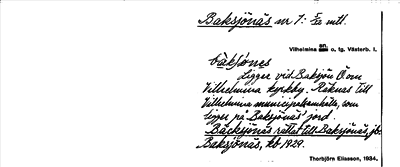 Baksjönäs nr 1: Fs mtl.
Vilhelmina sn o. tg. Västerb. l.
bàksjo`nes
Ligger vid Baksjön Ö om
Vilhelmina kyrkby. Räknas till
Vilhelmina municipalsamhälle, som
ligger på Baksjönäs' jord.
Bäcksjönäs rättat till Baksjönäs, jb.
Baksjönäs, kb 1929.
Thorbjörn Eliasson, 1934.